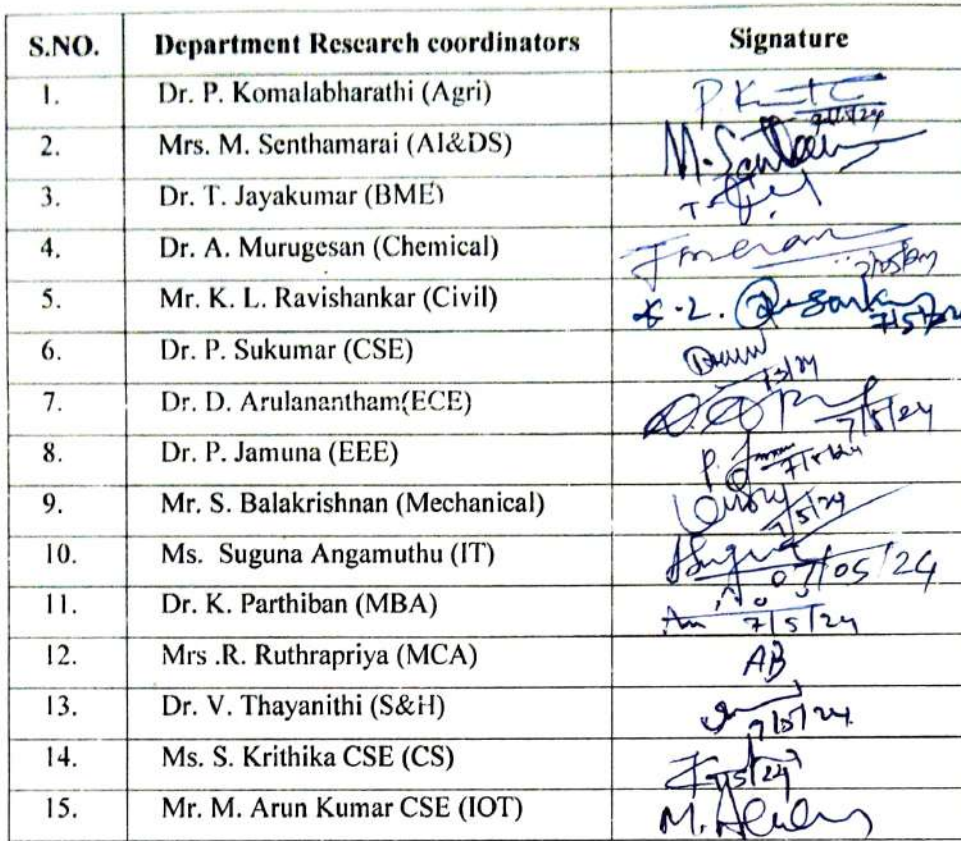 S.NO. Department Research coordinators Signature
1. Dr. P. Komalabharathi (Agri)
2. Mrs. M. Senthamarai (AI&DS) M.
3. Dr. T. Jayakumar (BME) T.
4. Dr. A. Murugesan (Chemical)
5. Mr. K. L. Ravishankar (Civil) K.L. 7/5/24
6. Dr. P. Sukumar (CSE)
7. Dr. D. Arulanantham(ECE) 7/5/24
8. Dr. P. Jamuna (EEE) P. 7/5/24
9. Mr. S. Balakrishnan (Mechanical) 7/5/24
10. Ms. Suguna Angamuthu (IT) 07/05/24
11. Dr. K. Parthiban (MBA) 7/5/24
12. Mrs .R. Ruthrapriya (MCA) AB
13. Dr. V. Thayanithi (S&H) 7/5/24
14. Ms. S. Krithika CSE (CS) 7/5/24
15. Mr. M. Arun Kumar CSE (IOT) M.